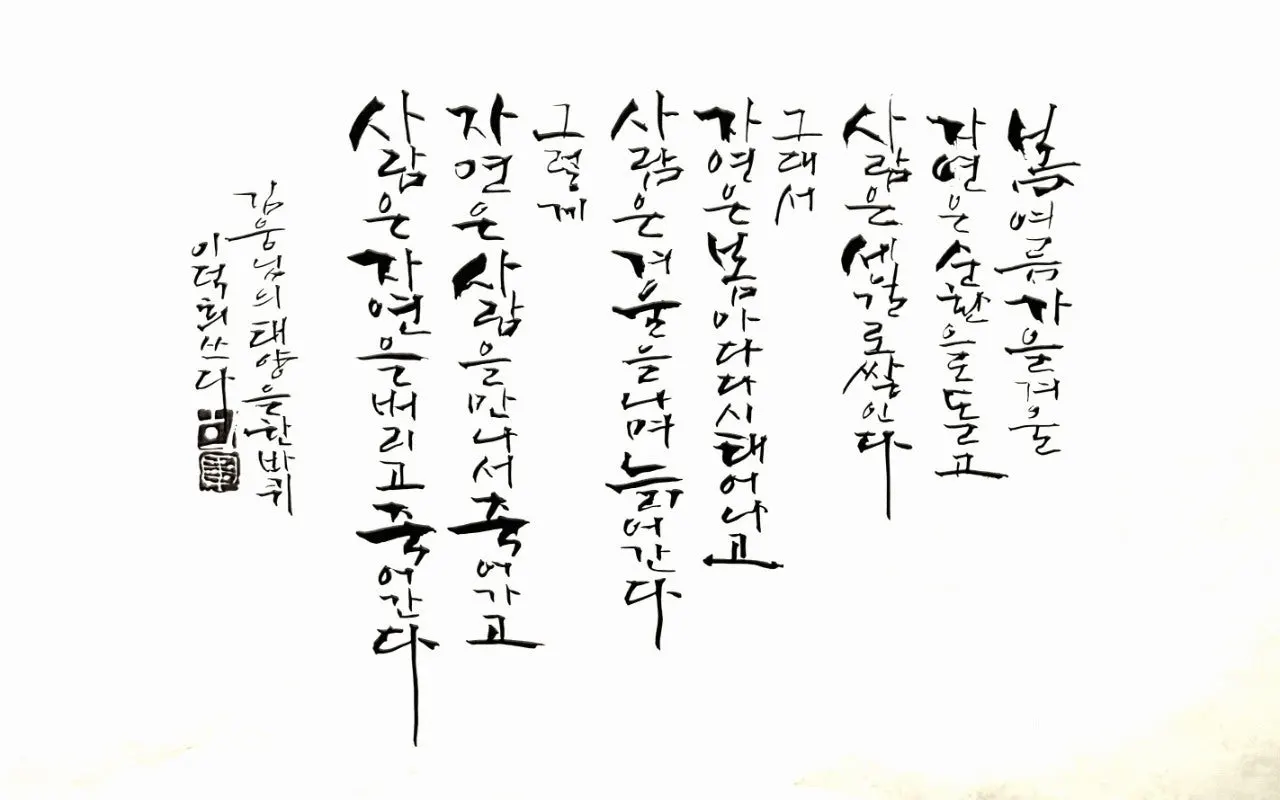 봄여름가을겨울
자연은순환으로돌고
사람은세월로쌓인다
그래서
자연은봄마다다시태어나고
사람은겨울을나며늙어간다
그렇게
자연은사람을만나서죽어가고
사람은자연을버리고죽어간다
김웅님의태양을한바퀴
이덕희쓰다